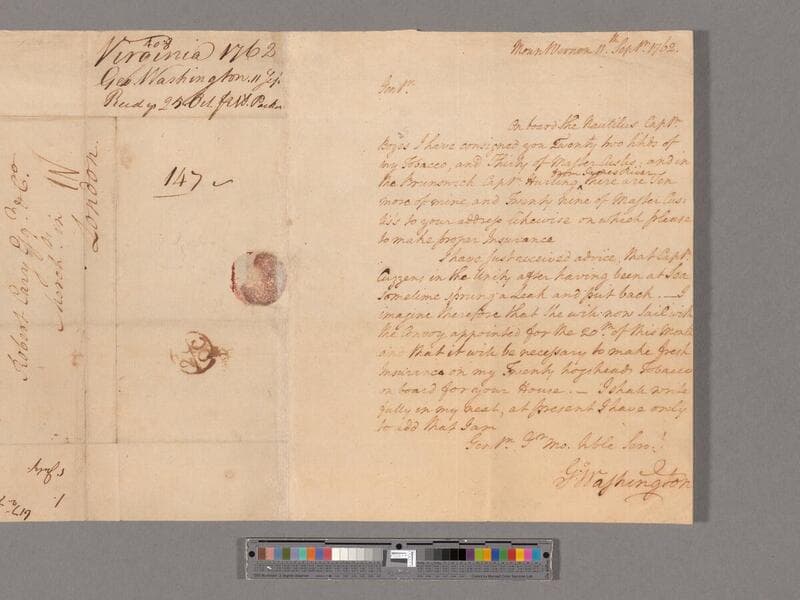 Virginia 1762
Geo. Washington 11 Sep.
Recd 25 Oct
147
Robert Cary Esqr. & Co.
Merch.ts in
London
Mount Vernon 11th Septr. 1762.
Gentn.
On board the Nautilus Captn.
Boyes I have consigned you Twenty two hhds of
my Tobacco, and Thirty of Master Custis; and in
from James River
the Brunswick Captn. Harling, there are Ten
more of mine and Twenty nine of Master Cus-
tis's to your address likewise on which please
to make proper Insurance
I have just received advice, that Captn.
Cuzzens in the Unity after having been at Sea
sometime sprung a Leak and put back. — I
imagine therefore that she will now sail with
the Convoy appointed for the 20th. of this Month
and that it will be necessary to make fresh
Insurance on my Twenty hogsheads Tobacco
on board for your House. — I shall write
fully in my next, at present I have only
to add that I am
Gentn. Yr. Mo. Hble Servt.
Go. Washington